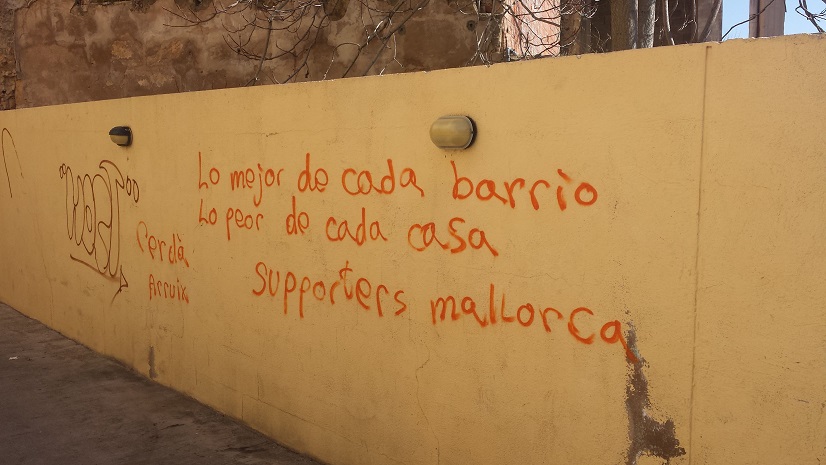 Lo mejor de cada barrio
Lo peor de cada casa
supporters mallorca
Cerdà
Arruix